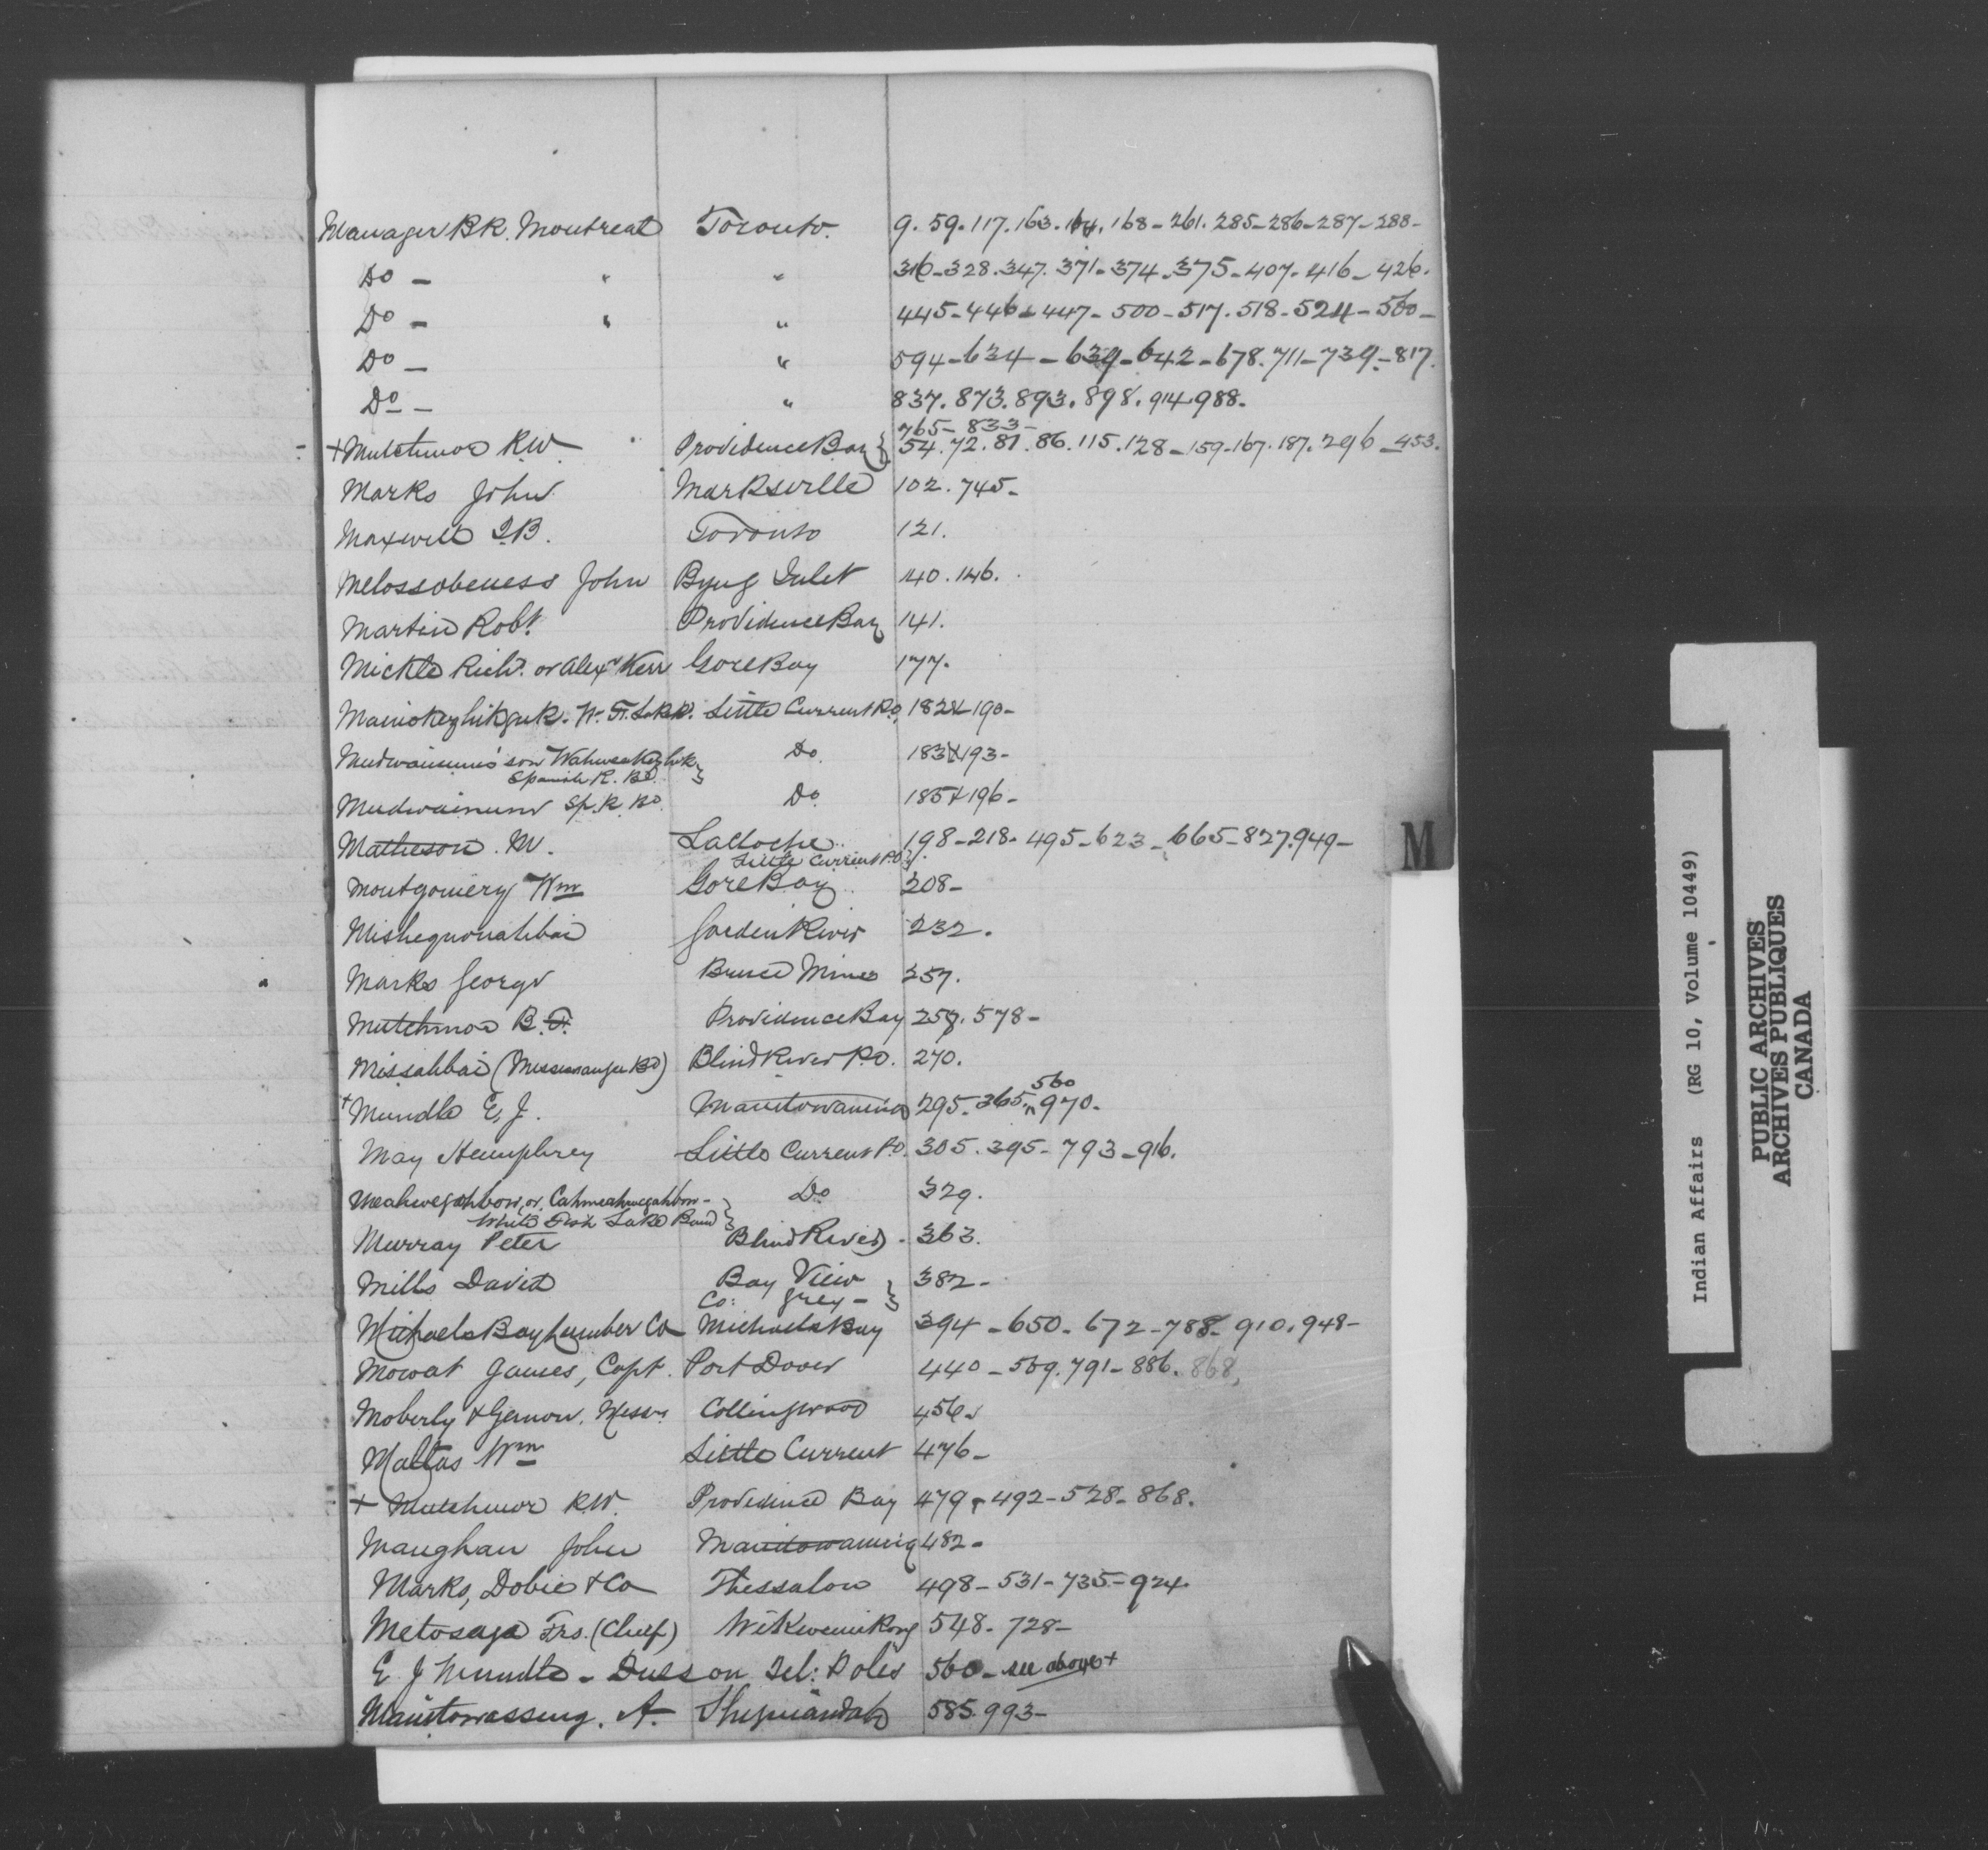 Manager BK. Montreal Toronto. 9. 59. 117. 163. 164. 168 - 261. 285 - 286 - 287 - 288 -
Do - " " 316 - 328. 347. 371 - 374 - 375 - 407 - 416 - 426.
Do - " " 445 - 446 - 447 - 500 - 517. 518 - 524 - 560 -
Do - " 594 - 634 - 639 - 642 - 678. 711 - 739 - 817.
Do - " 837. 873. 893. 898. 914 988 -
765 - 833 -
+ Mutchmor R.W. Providence Bay } 54. 72. 81. 86. 115. 128 - 159 - 167. 187. 296 - 453.
Marks John Marksville 102. 745 -
Maxwell I.B. Toronto 121.
Melossobeness John Byng Inlet 140. 146.
Martin Robt. Providence Bay 141.
Mickle Richd. or Alexr Kerr Gore Bay 177.
W. F. Lake Little Current P.O. 182 & 190 -
son Do. 183 & 193 -
Spanish R. Bd. }
Mudwainum Sp. R. Bd. Do. 185 & 196 -
Matheson. M. LaCloche 198 - 218 - 495 - 623 - 665 - 827. 949 -
Little Current P.O. }
Montgomery Wm Gore Bay 208 -
Mishequonahbai Garden River 232.
Marks George Bruce Mines 257.
Mutchmor B. F. Providence Bay 258. 578 -
Missahbai (Mississauga Bd) Blind River P.O. 270.
560
+ Mundle E. J. Manitowaning 295. 365. ^ 970 -
May Humphrey Little Current P.O. 305. 395 - 793 - 916.
Meahwegahbow, or Cahmeahwegahbow - } Do 329.
White Fish Lake Band }
Murray Peter Blind River - 363.
Mills David Bay View } 382 -
Co: Grey - }
Michaels Bay Lumber Co Michaels Bay 394 - 650 - 672 - 788 - 910. 948 -
Mowat James, Capt. Port Dover 440 - 569. 791 - 886. 868,
Moberly & Gernon. Messrs Collingwood 456
Maltas Wm Little Current 476 -
+ Mutchmor R.W. Providence Bay 479, 492 - 528 - 868.
Maughan John Manitowaning 482 -
Marks, Dobie & Co Thessalon 498 - 531 - 735 - 924.
Metosaga Frs. (Chief) Wikwemikong 548 - 728 -
E J Mundle - Dues on Tel: Poles 560 - see above +
Manitowassung. A. Sheguiandah 585. 993 -
M
Indian Affairs (RG 10, Volume 10449)
PUBLIC ARCHIVES
ARCHIVES PUBLIQUES
CANADA